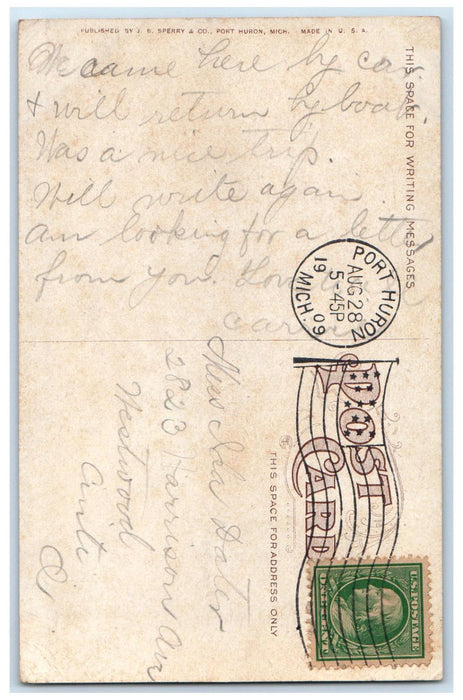 PUBLISHED BY J. B. SPERRY & CO., PORT HURON, MICH. MADE IN U. S. A.
THIS SPACE FOR WRITING MESSAGES
We came here by car
& will return by boat.
Was a nice trip.
Will write again.
am looking for a letter
from you.
PORT HURON
AUG 28
5-45P
1909
MICH.
POST CARD
THIS SPACE FOR ADDRESS ONLY
Miss Ada Dater
2823 Harrison Ave
Westwood
O
U.S. POSTAGE
ONE CENT